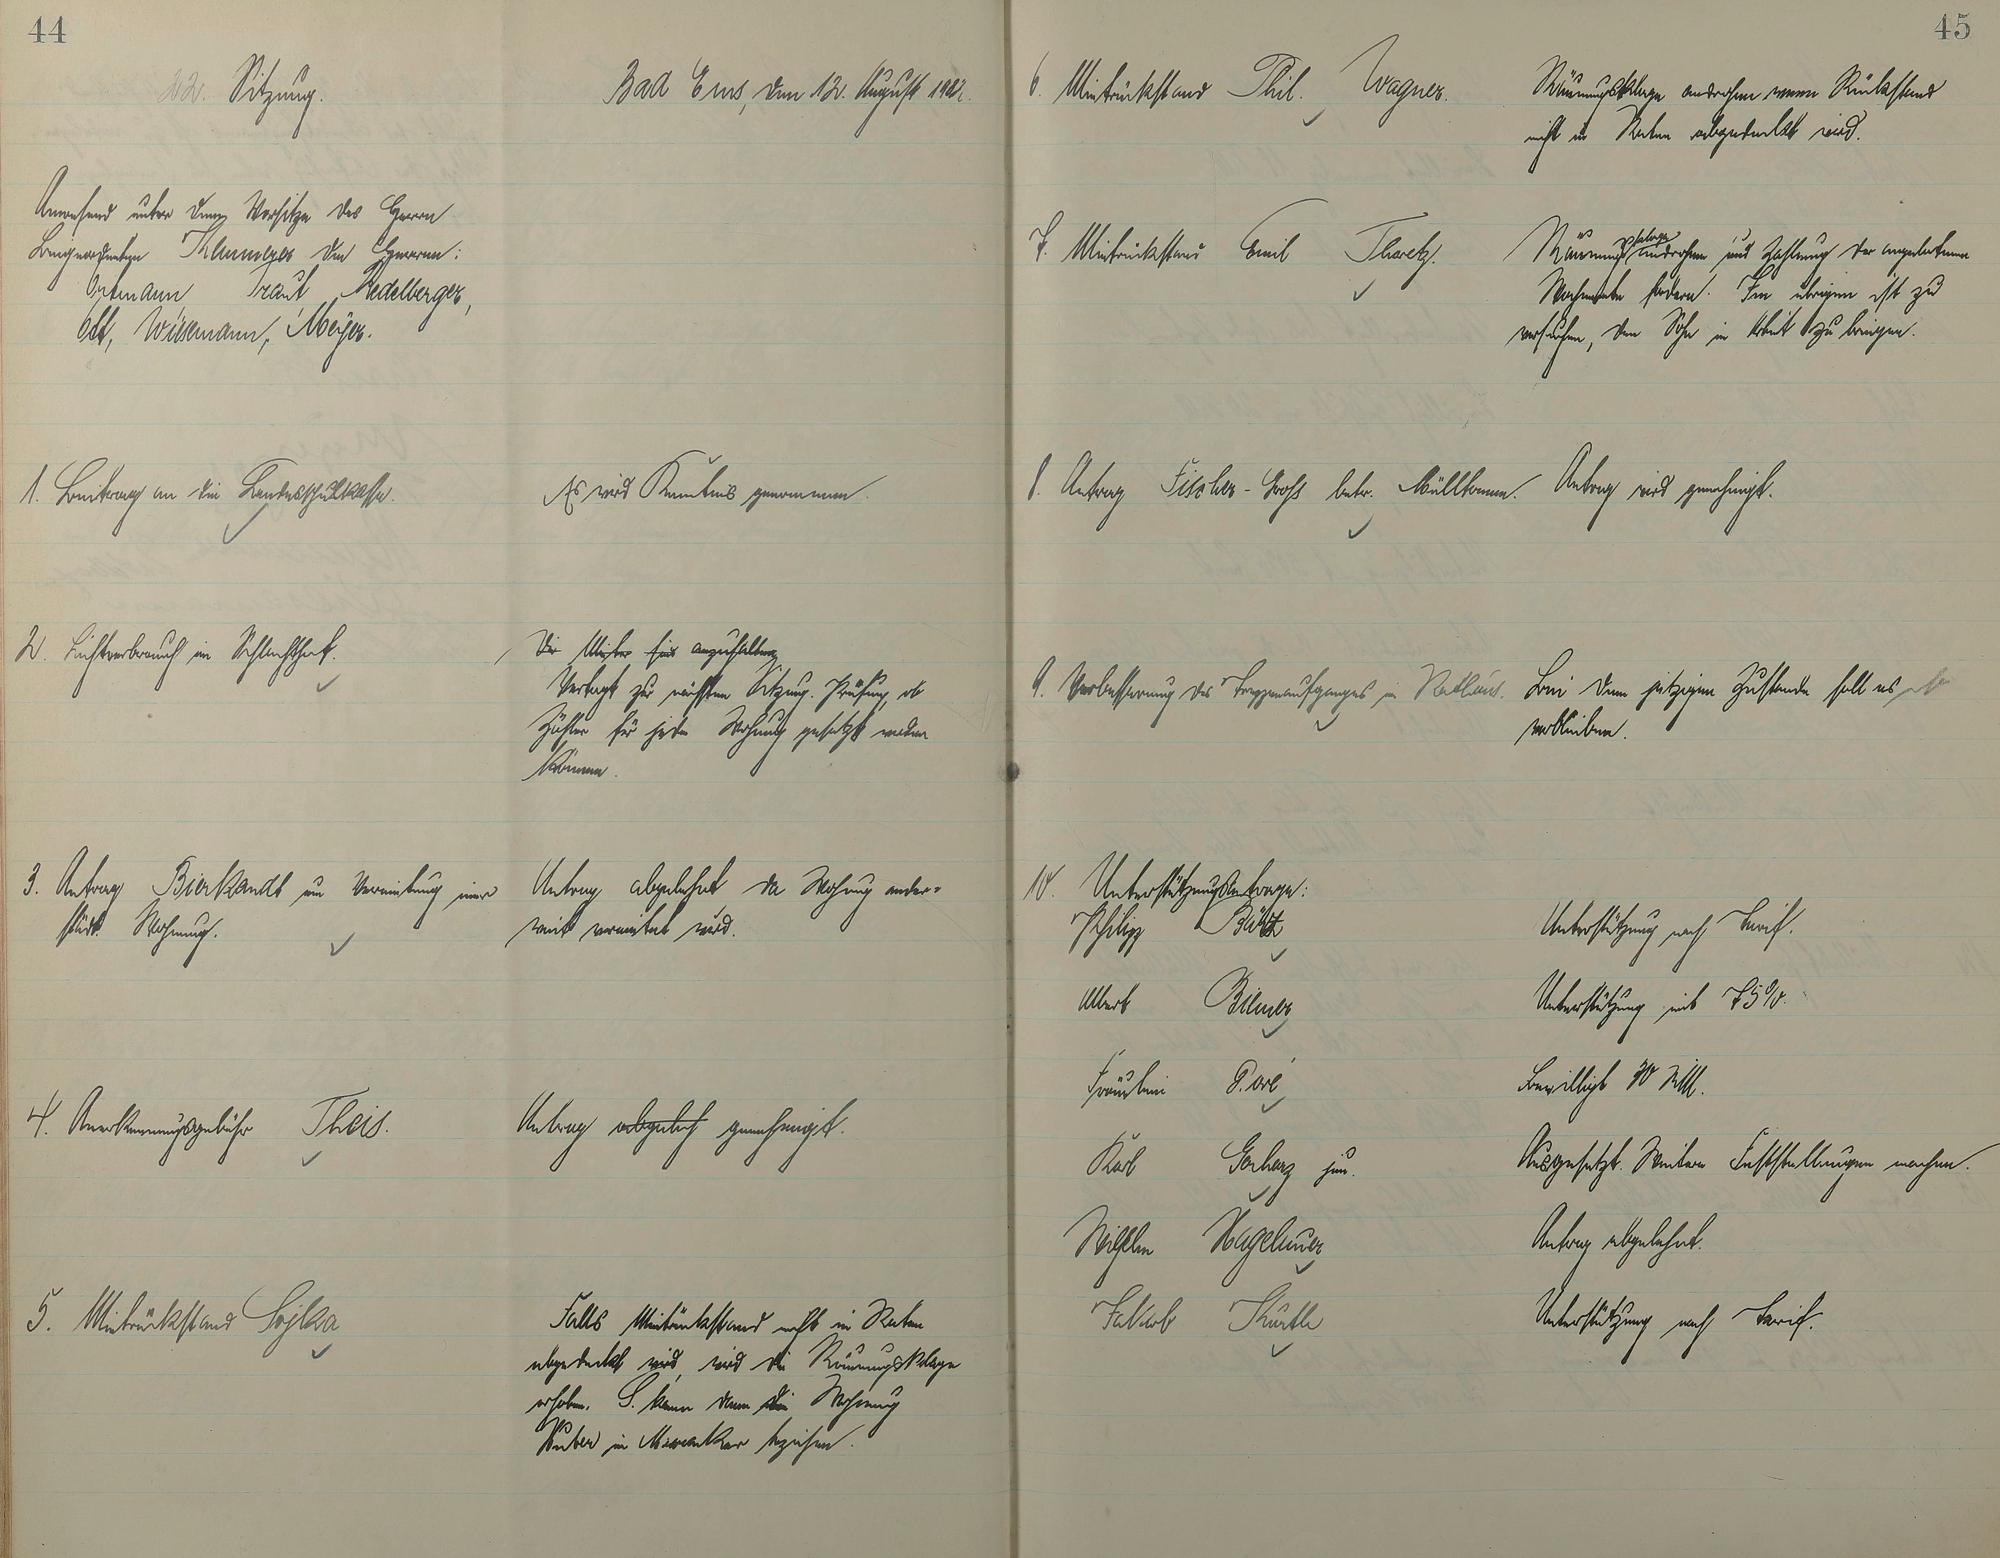 44
22. Sitzung.
Bad Ems, den 12. August 192
Anwesend unter dem Vorsitze des Herrn
Beigeordneten Thlumeyer die Herren:
Ortmann Traut Medelberger,
Ott, Wiesemann, Meyer.
1. Beitrag an die Landesschulkasse.
Es wird Kenntnis genommen.
2. Lichtverbrauch im Schlachthof.
Die Mieter sind anzuhalten
Vertagt zur nächsten Sitzung. Prüfung, ob
Zähler für jede Wohnung gesetzt werden
können.
3. Antrag Bierkandt um Vermietung einer
städt. Wohnung.
Antrag abgelehnt da Wohnung ander-
weit vermietet wird.
4. Anerkennungsgebühr Theis.
Antrag abgeleh genehmigt.
5. Mietrückstand Sojka
Falls Mietrückstand nicht in Raten
abgedeckt wird, wird die Räumungsklage
erhoben. S. kann dann die Wohnung
in beziehen.
45
6. Mietrückstand Phil. Wagner.
Räumungsklage androhen wenn Rückstand
nicht in Raten abgedeckt wird.
7. Mietrückstand Emil Theretz.
Räumungsklage androhen und Zahlung der angebotenen
Wochenrate fordern. Im übrigen ist zu
versuchen, den Sohn in Arbeit zu bringen.
8. Antrag Fischer-Groß betr. Mülltonnen.
Antrag wird genehmigt.
9. Verbesserung des Treppenaufganges im Rathaus.
Bei dem jetzigen Zustande soll es
verbleiben.
10. Unterstützungsanträge:
Philipp Bütz
Unterstützung nach Tarif.
Albert Bilmer
Unterstützung mit 75%.
Fräulein Doré
Bewilligt 30 Mk.
Karl Gerharz jun.
Ausgesetzt. Weitere Feststellungen machen.
Wilhelm Hagelauer
Antrag abgelehnt.
Jakob Kürtle
Unterstützung nach Tarif.